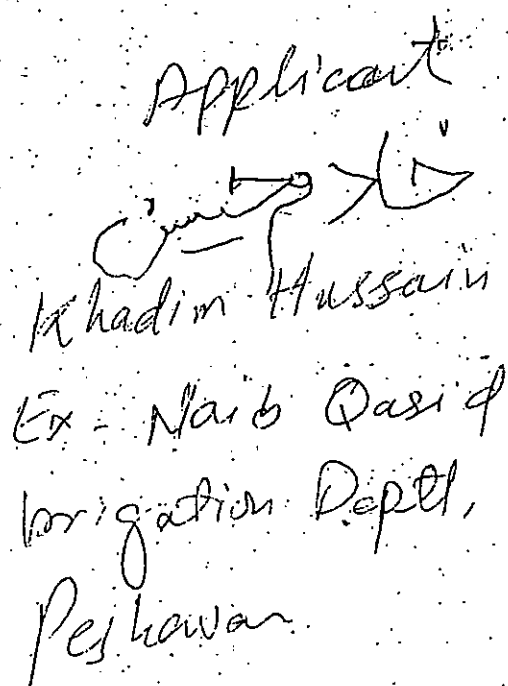 Applicant
خادم حسین
Khadim Hussain
Ex- Naib Qasid
Irrigation Deptt,
Peshawar